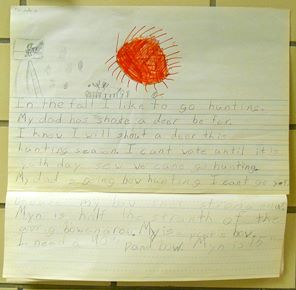 In the fall I like to go hunting.
My dad has shout a dear be for.
I know I will shout a dear this
hunting season. I cant vate until it is
yoth day so we cane go hunting.
My dad is going bow hunting I cant go yet
because my bow isnt strong
Myn is half the stranth of the
bow. My is
I need a 40 pand bow. Myn is 15